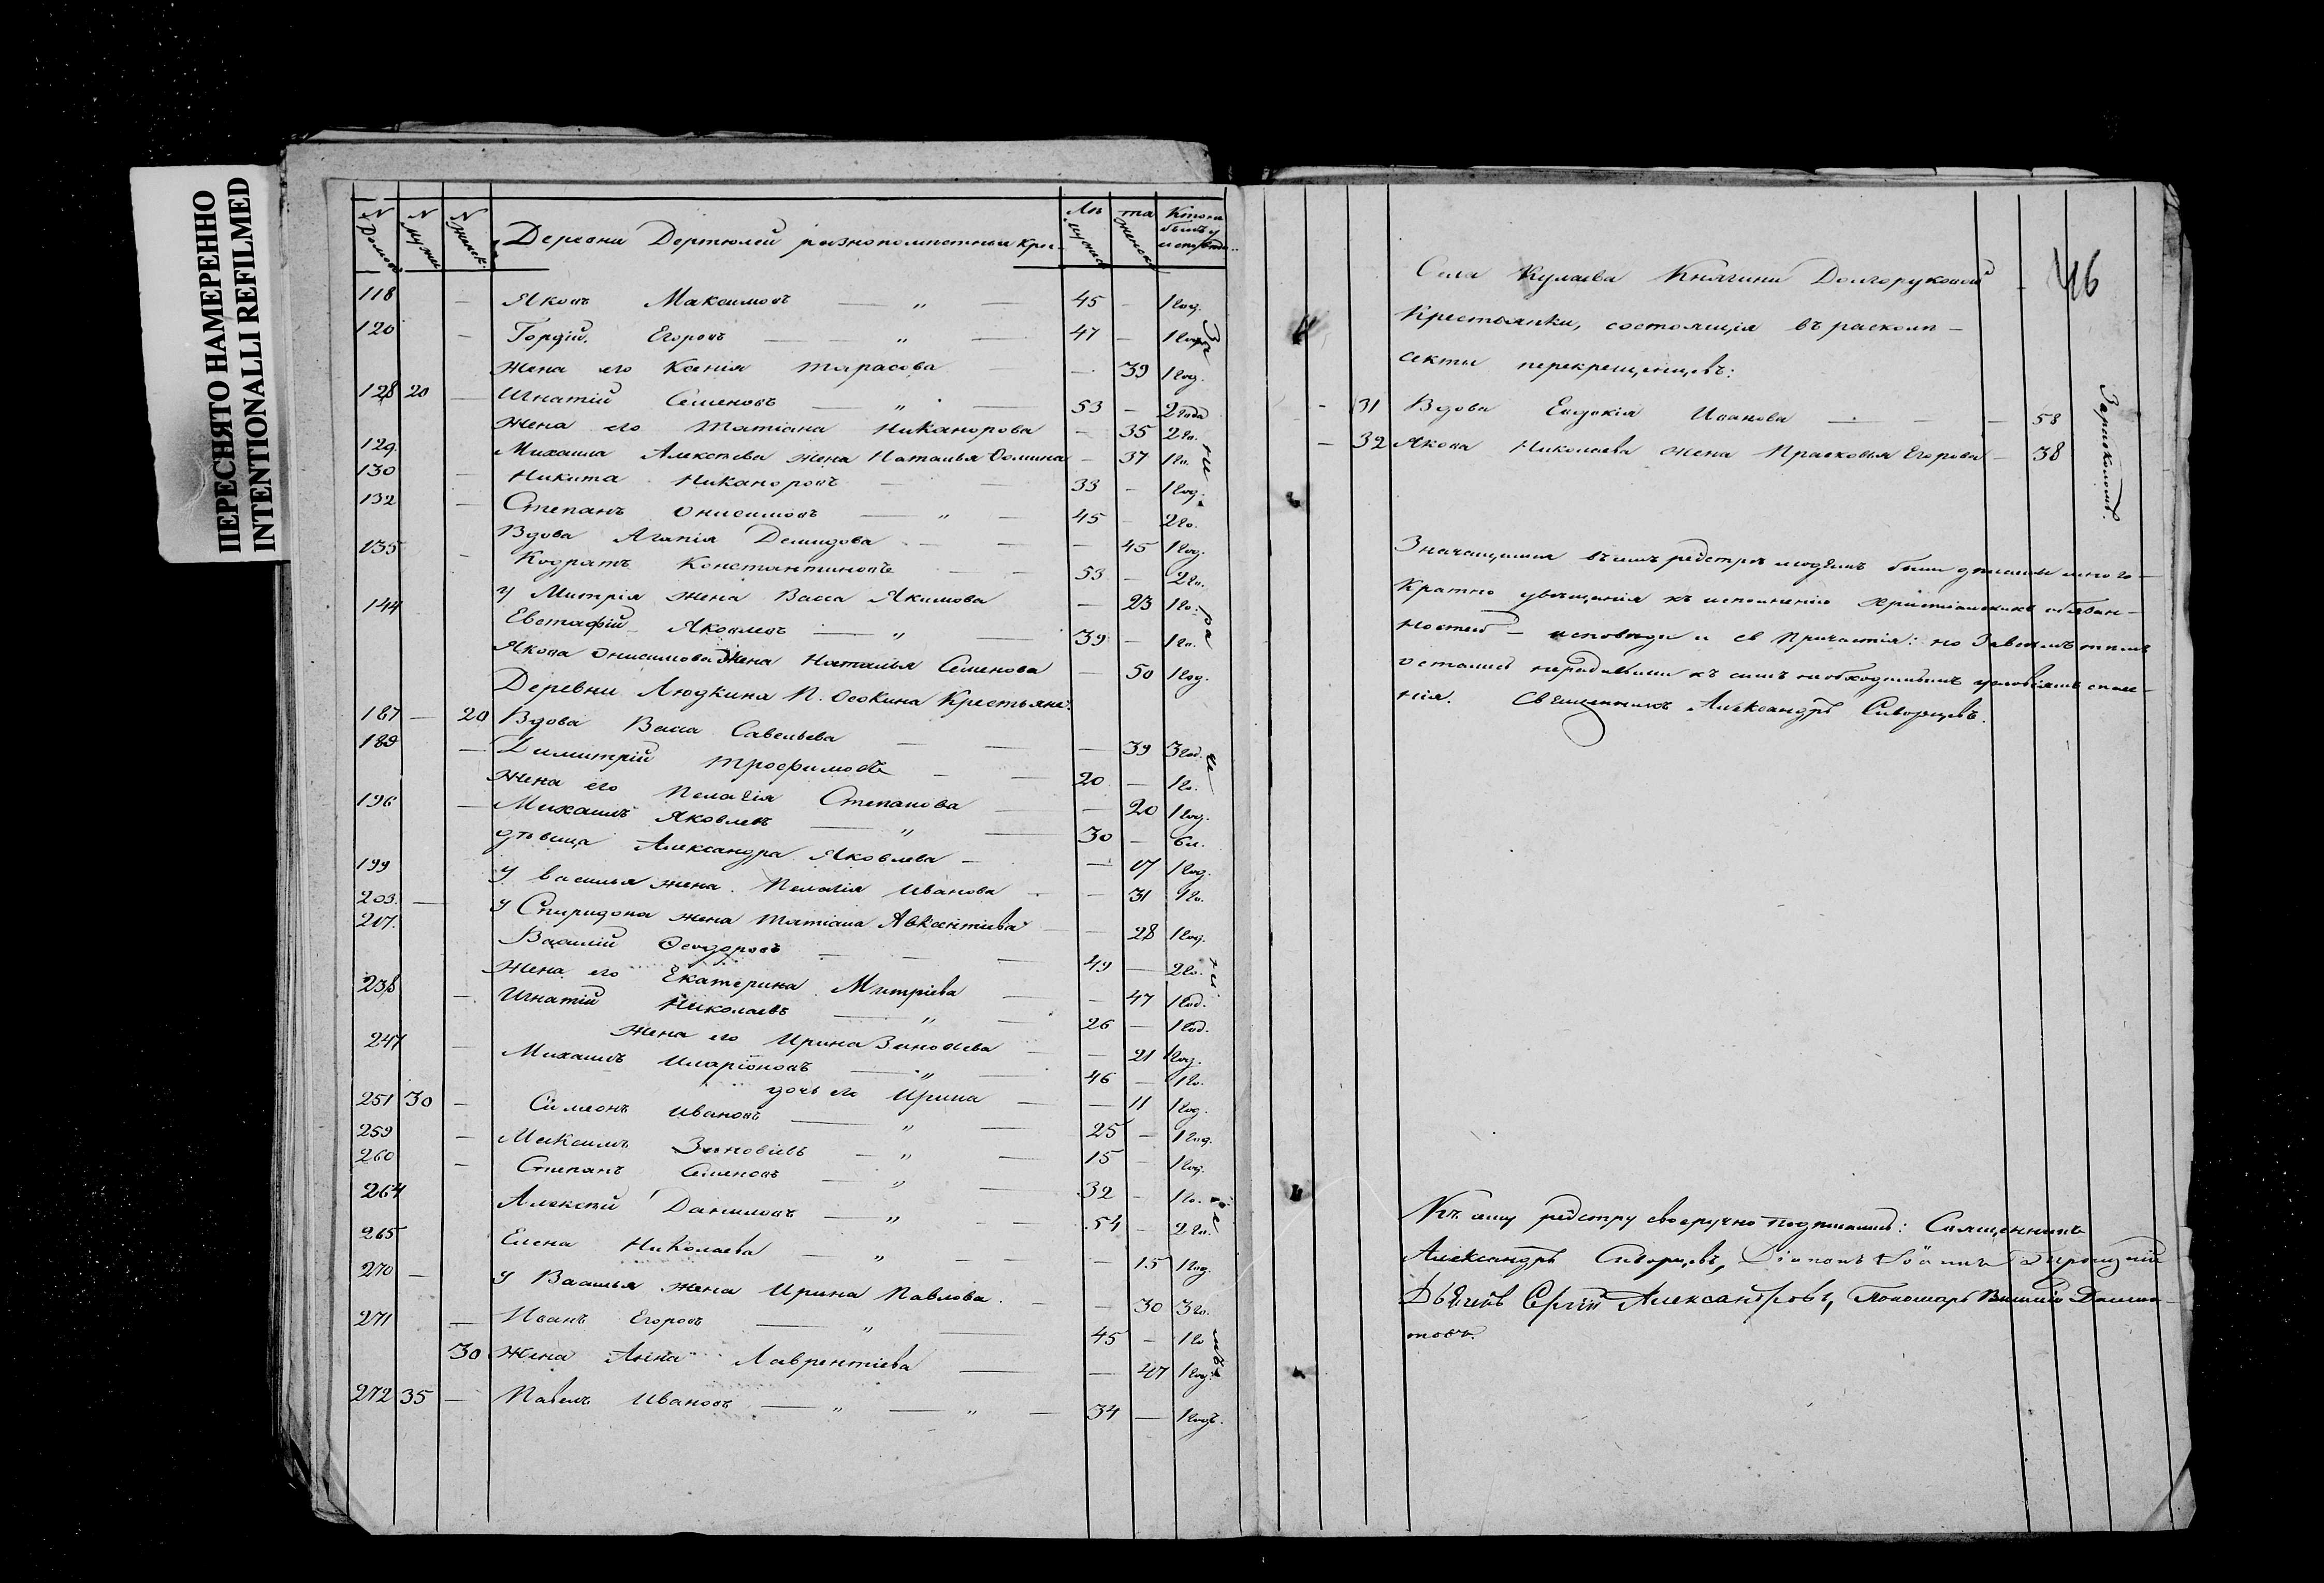 ПЕРЕСНЯТО НАМЕРЕННО
INTENTIONALLI REFILMED
N Домов N мужс N женск. Деревни Дертюлей разнопоместныя кре- Лѣ мужск та женск
118 — Яковъ Максимовъ — „ — 45 — 1 год.
120 — Гордій Егоровъ — „ — 47 — 1 год
Жена его Ксенія Тарасова — 39 1 год.
128 20 — Игнатій Семеновъ — „ — 53 — 2 года
Жена его Татіана Никанорова — 35 2 го.
129. Михаила Алексѣева жена Наталья Фомина — 37 1 го.
130 — Никита Никаноровъ — 33 — 1 год.
132 — Степанъ Онисимовъ — „ — 45 — 2 го.
Вдова Агапія Демидова — — 45 1 год.
135 — Кодратъ Константиновъ — 53 — 2 го.
У Митрія жена Васса Якимова — 23 1 го.
144 Евстафій Яковлевъ — „ — 39 — 1 го.
Якова Онисимова жена Наталья Семенова — 50 1 год.
Деревни Людкина П. Осокина Крестьяне.
187 — 20 Вдова Васса Савельева — — 39 3 год.
189 — Димитрій Трофимовъ — 20 — 1 го.
Жена его Пелагія Степанова — 20 1 год.
196 — Михаилъ Яковлевъ — „ — 30 — 6 л.
дѣвица Александра Яковлева — — 17 1 год.
199 У Василья жена Пелагія Иванова — 31 1 го.
203. — У Спиридона жена Татіана Авксентіева — 28 1 год.
217. Василій Феодоровъ — 49 — 2 го.
Жена его Екатерина Митріева — — 47 1 год.
238 — Игнатій Николаевъ — „ — 26 — 1 год.
Жена его Ирина Зиновіева — — 21 1 год.
247 — Михаилъ Иларіоновъ — „ — 46 — 1 го.
дочь его Ирина — — 11 1 год.
251 30 — Симеонъ Ивановъ — „ — 25 — 1 год.
259 — Максимъ Зиновіевъ — „ — 15 — 1 год.
260 — Степанъ Семеновъ — „ — 32 — 1 го.
264 Алексѣй Даниловъ — „ — 54 — 2 го.
265 Елена Николаева — „ — — 15 1 год.
270 — У Василья жена Ирина Павлова. — — 30 3 го.
271 — Иванъ Егоровъ — „ — 45 — 1 го
30 Жена Анна Лаврентіева — — 47 1 год.
272 35 — Павелъ Ивановъ — „ — „ — 34 — 1 годъ.
46
Села Кулаева Княгини Долгоруковой
Крестьянки, состоящія въ расколѣ —
секты перекрещенцевъ:
— 31 Вдова Евдокія Иванова — — — 58
— 32 Якова Николаева жена Прасковья Егорова — 38
За расколомъ.
Значащимся въ семъ реестрѣ людямъ были дѣланы много-
кратно увѣщанія къ исполненію христіанскихъ обязан-
ностей — исповѣди и св Причастія: но За всемъ тѣмъ
остались нерадивыми къ симъ необходимымъ условіямъ спасе-
нія. Священникъ Александръ Сиворцевъ.
Къ сему реестру своеручно подписались: Священникъ
Александръ Сиворцевъ, Діаконъ Іоаннъ Троицкій
Дьячекъ Сергій Александровъ, Пономарь